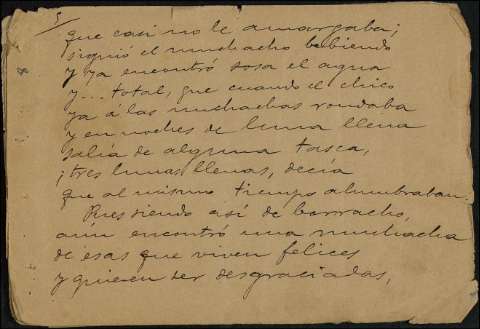 5
que casi no le amargaba;
siguió el muchacho bebiendo
y ya encontró sosa el agua
y... total, que cuando el chico
ya á las muchachas rondaba
y en noches de luna llena
salía de alguna tasca,
¡tres lunas llenas, decía
que al mismo tiempo alumbraban.
Pues siendo así de borracho,
aún encontró una muchacha
de esas que viven felices
y quieren ser desgraciadas,